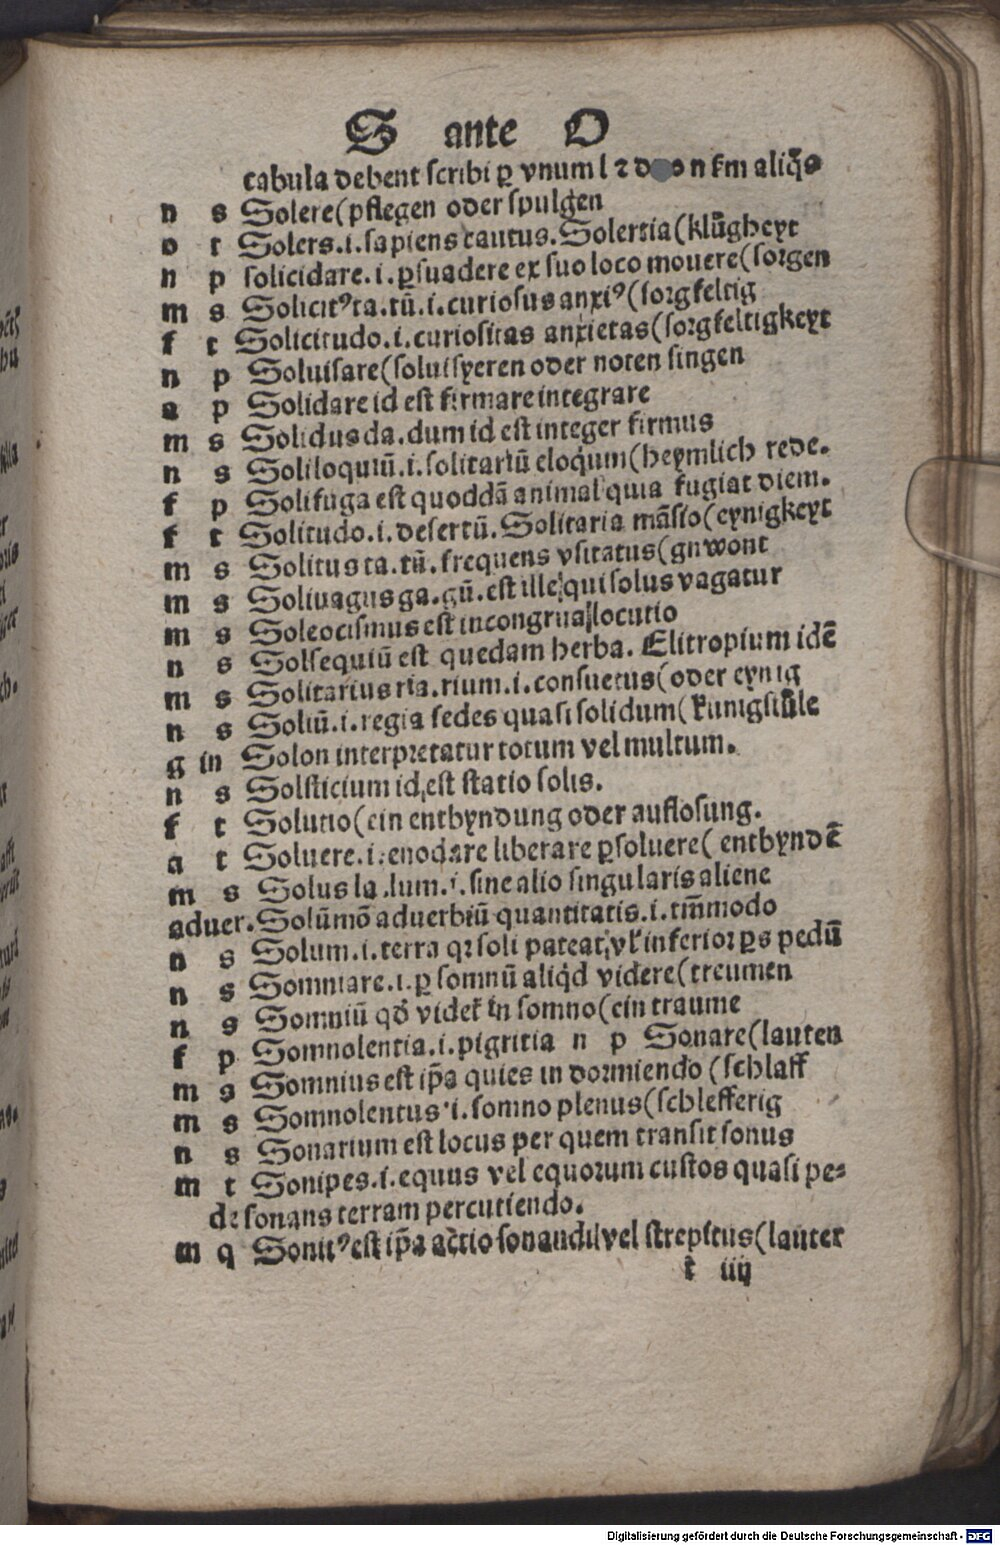 S ante O
cabula debent scribi ꝑ vnum l ⁊ n s̄m aliq̄s
n s Solere(pflegen oder spulgen
o t Solers.i.sapiens cautus.Solertia(klůgheyt
n p solicidare.i.ꝑsuadere ex suo loco mouere(sorgen
m s Solicitꝰ ta.tū.i.curiosus anxiꝰ(sorgfeltig
f t Solicitudo.i.curiositas anxietas(sorgfeltigkeyt
n p Soluisare(soluisyeren oder noten singen
a p Solidare id est firmare integrare
m s Solidus da.dum id est integer firmus
n s Soliloquiū.i.solitariū eloquium(heymlich rede.
f p Solifuga est quoddā animal quia fugiat diem.
f t Solitudo.i.desertū.Solitaria māsio(eynigkeyt
m s Solitus ta.tū.frequens vsitatus(gnwont
m s Soliuagus ga.gū.est ille qui solus vagatur
m s Soleocismus est incongrua locutio
n s Solsequiū est quedam herba. Elitropium idē
m s Solitarius ria.rium.i.consuetus(oder eynig
n s Soliū.i.regia sedes quasi solidum(kunigstůle
g in Solon interpretatur totum vel multum.
n s Solsticium id est statio solis.
f t Solutio(ein entbyndung oder auflosung.
a t Soluere.i.enodare liberare ꝑsoluere(entbyndē
m s Solus la.lum.i.sine alio singularis aliene
aduer.Solūmō aduerbiū quantitatis.i.tm̄modo
n s Solum.i.terra qꝛ soli pateat, vl' inferior ꝑs pedū
n s Somniare.i.ꝑ somnū aliqd videre(treumen
n s Somniū qď videt' in somno(ein traume
f p Somnolentia.i.pigritia n p Sonare(lauten
m s Somnius est ip̄a quies in dormiendo(schlaff
m s Somnolentus.i.somno plenus(schlefferig
n s Sonarium est locus per quem transit sonus
m t Sonipes.i.equus vel equorum custos quasi pe⸗
de sonans terram percutiendo.
m q Sonitꝰ est ip̄a actio sonandi vel strepitus(lauter
t iiij
Digitalisierung gefördert durch die Deutsche Forschungsgemeinschaft - DFG